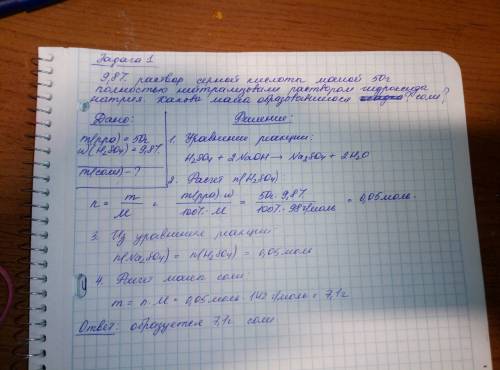 Задача 1
9,8% раствор серной кислоты массой 50г
полностью нейтрализовали раствором гидроксида
натрия. Какова масса образовавшейся соли?
Дано:
Решение:
m(рра) = 50г
w(H₂SO₄) = 9,8%
m(соли) - ?
1. Уравнение реакции:
H₂SO₄ + 2NaOH → Na₂SO₄ + 2H₂O
2. Расчет n(H₂SO₄)
n = m/M = m(рра)·w/100%·M = 50г·9,8%/100%·98г/моль = 0,05 моль
3. Из уравнения реакции
n(Na₂SO₄) = n(H₂SO₄) = 0,05 моль
4. Расчет массы соли:
m = n·M = 0,05 моль · 142 г/моль = 7,1г
Ответ: образуется 7,1г соли